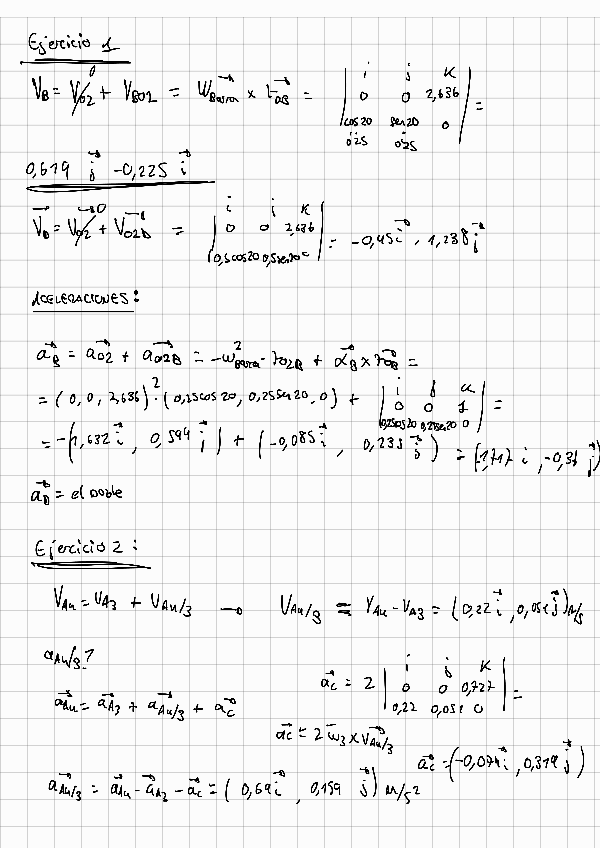 Ejercicio 1
V_B = V_O2 + V_BO2 = W_Barra × r_OB = | i j k | 0 0 2,636 | cos20 sen20 0 | 0'25 0'25 =
0,619 j -0,225 i
V_D = V_O2 + V_O2D = | i j k | 0 0 2,636 | 0,5cos20 0,5sen20 0 | = -0,45 i , 1,238 j
ACELERACIONES:
a_B = a_O2 + a_O2B = -w²_Barra · r_O2B + α_B × r_OB =
= (0,0,2,636)² · (0,25cos20, 0,25sen20, 0) + | i j k | 0 0 1 | 0,25cos20 0,25sen20 0 | =
= -(1,632 i , 0,594 j) + (-0,085 i , 0,235 j) = (-1,717 i , -0,36 j)
a_D = el doble
Ejercicio 2:
V_A4 = V_A3 + V_A4/3 → V_A4/3 = V_A4 - V_A3 = (0,22 i , 0,051 j) m/s
a_A4/3?
a_c = 2 | i j k | 0 0 0,727 | 0,22 0,051 0 | =
a_A4 = a_A3 + a_A4/3 + a_c
a_c = 2 w_3 × V_A4/3
a_c = (-0,074 i , 0,319 j)
a_A4/3 = a_A4 - a_A3 - a_c = (0,69 i , 0,159 j) m/s²